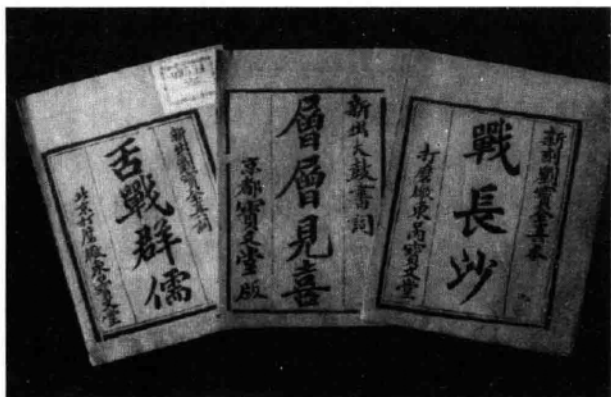 新刻劉寶全真詞
舌戰群儒
北京打磨廠東口寶文堂
新出大鼓書詞
層層見喜
京都寶文堂啟
新刻劉寶全真本
戰長沙
打磨廠東口寶文堂